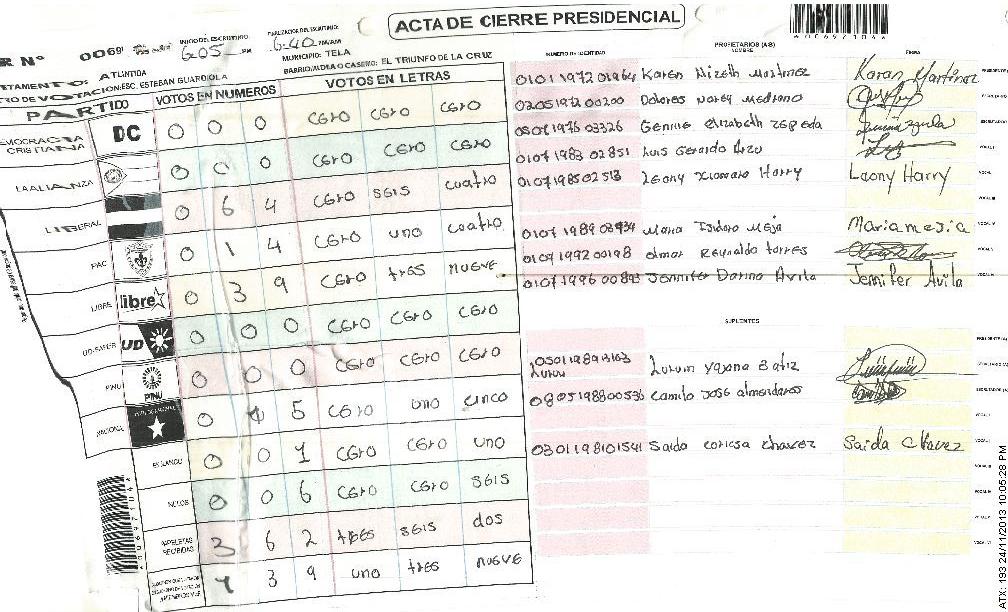 ACTA DE CIERRE PRESIDENCIAL
R Nº 00691 INICIO DEL ESCRUTINIO: 6:05 PM FINALIZACION DEL ESCRUTINIO: 6:40 PM/AM
MUNICIPIO: TELA
ATLANTIDA BARRIO/ALDEA O CASERIO: EL TRIUNFO DE LA CRUZ
TRO DE VOTACION: ESC. ESTEBAN GUARDIOLA
PARTIDO VOTOS EN NUMEROS VOTOS EN LETRAS
DEMOCRACIA CRISTIANA DC 0 0 0 cero cero cero
LA ALIANZA 0 0 0 cero cero cero
LIBERAL 0 6 4 cero seis cuatro
PAC 0 1 4 cero uno cuatro
LIBRE libre 0 3 9 cero tres nueve
UD-FAPER UD 0 0 0 cero cero cero
PINU PINU 0 0 0 cero cero cero
NACIONAL 0 1 5 cero uno cinco
EN BLANCO 0 0 1 cero cero uno
NULOS 0 0 6 cero cero seis
PAPELETAS RECIBIDAS 3 6 2 tres seis dos
1 3 9 uno tres nueve
PROPIETARIOS (AS)
NUMERO DE IDENTIDAD NOMBRE FIRMA
0101 1972 01964 Karen Nizeth Martinez Karan Martinez
0205 1972 00200 Dolores Norey Medrano
0501 1976 03326 Gennie Elizabeth Zepeda
0107 1983 02851 Luis Gerardo Arzu
0107 1985 02513 Leony Xiomara Harry Laony Harry
0107 1989 03934 Maria Isidora Mejia Maria mejia
0107 1992 00198 elmar Reynaldo torres
0107 1996 00893 Jennifer Darina Avila Jennifer Avila
SUPLENTES
Lurvin Yojana Batiz
0805 1988 00536 Camilo José almendares
0301 1981 01541 Saida coricsa chavez Saida Chavez
ATX: 193 24/11/2013 10:05:28 PM